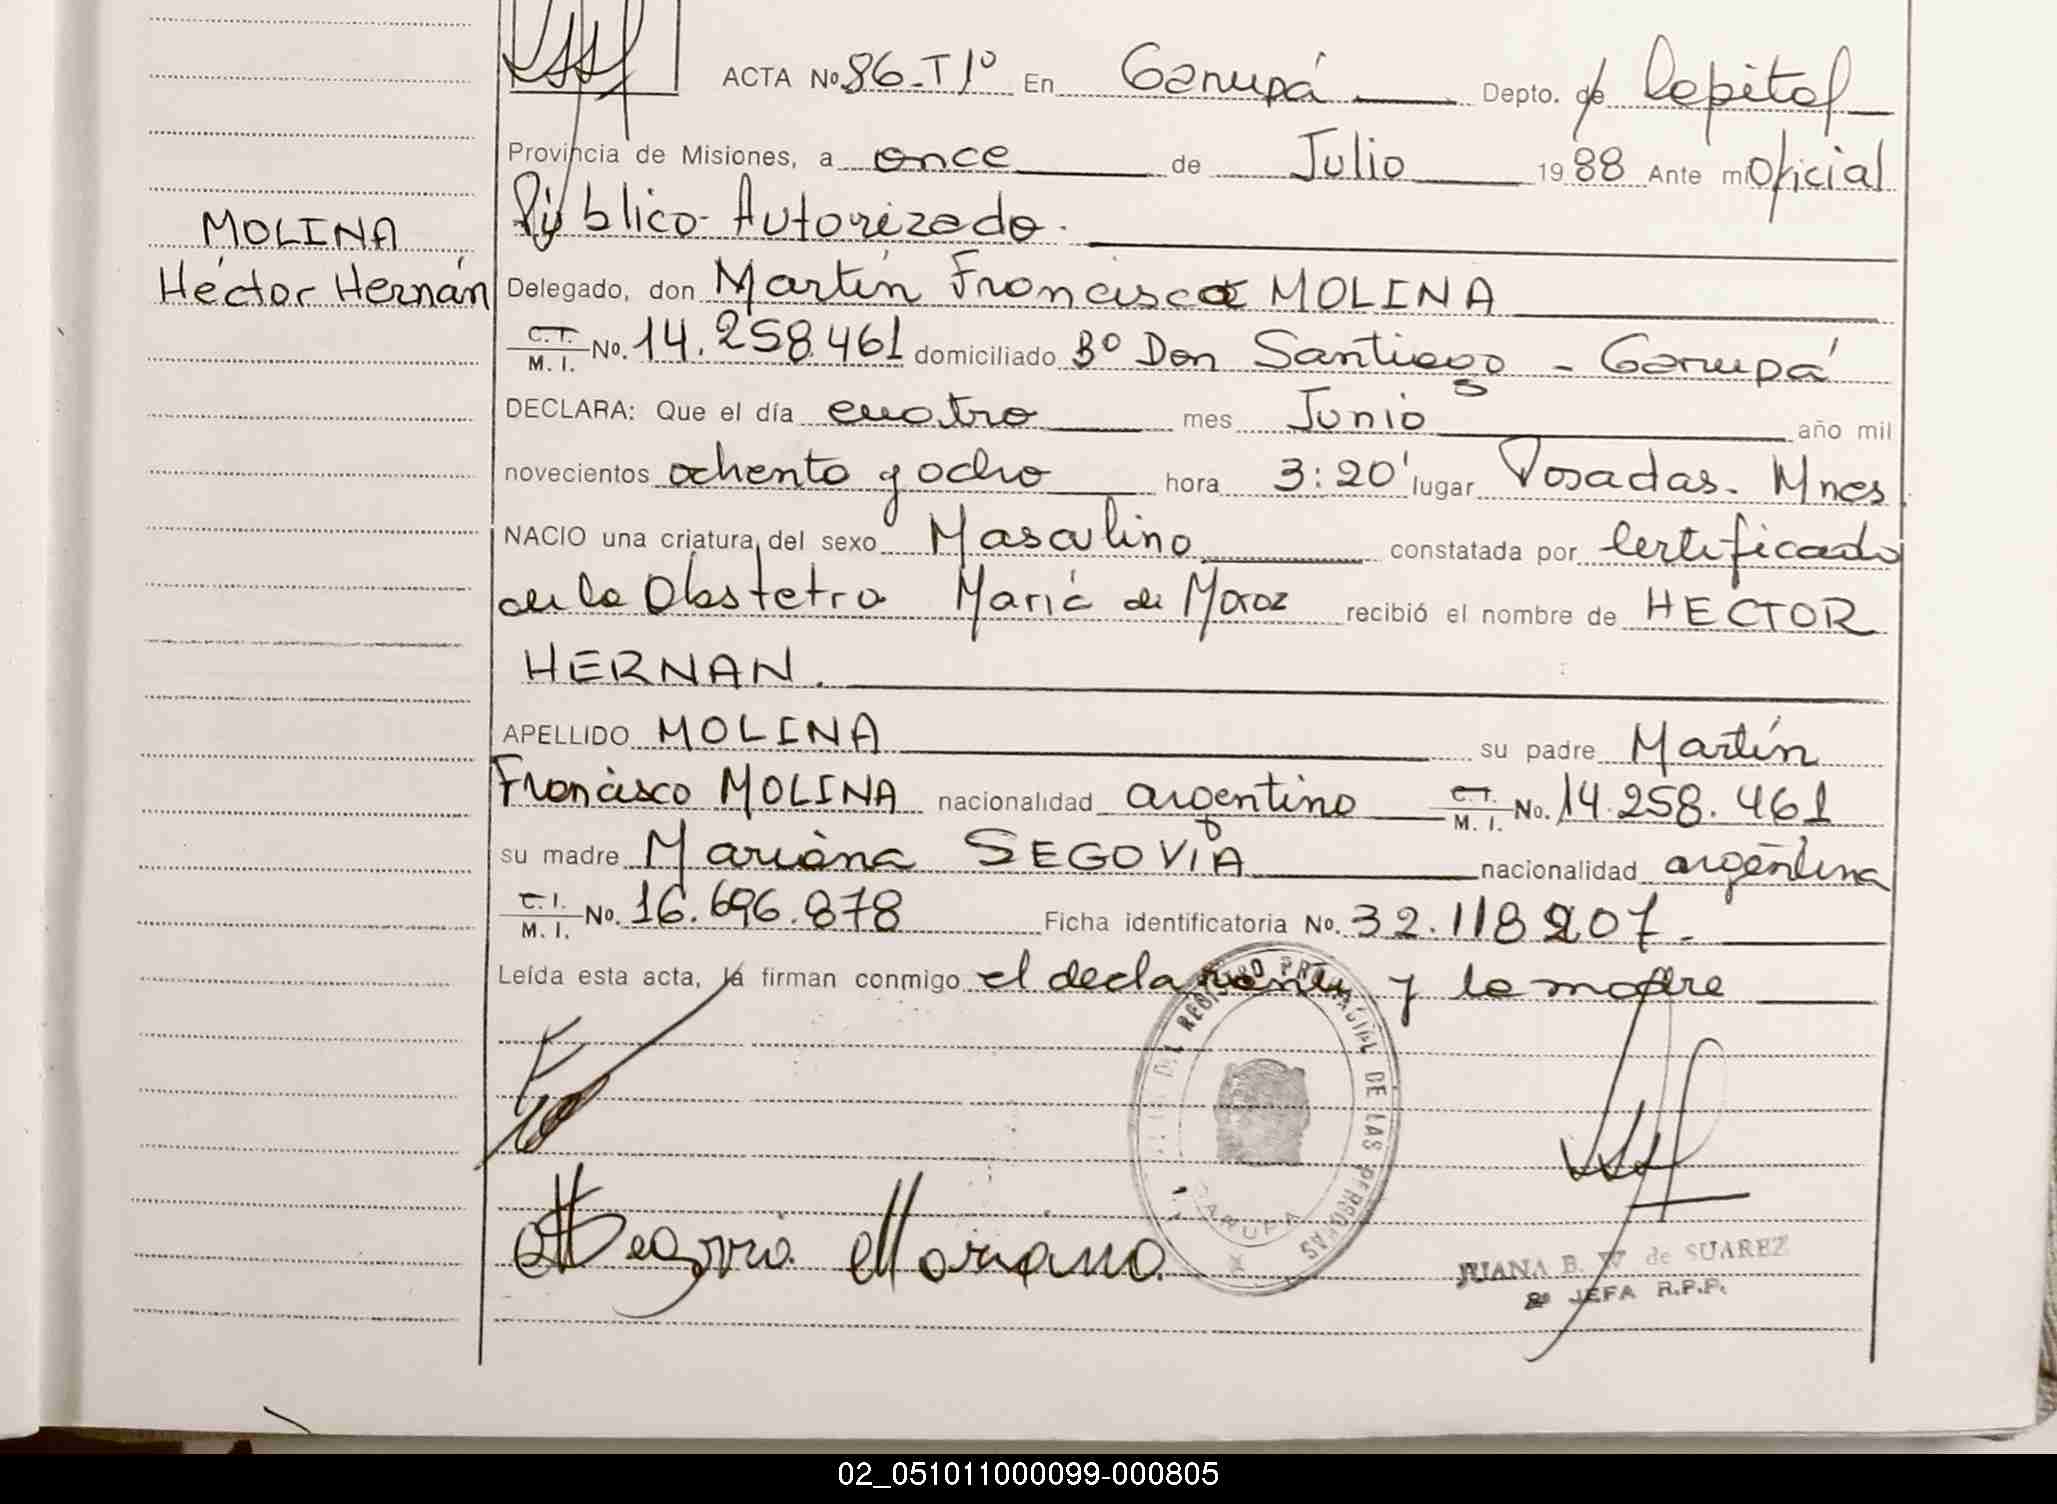 ACTA No 86-T1º En Garupá Depto. de Capital
Provincia de Misiones, a once de Julio 1988 Ante mi Oficial
Público Autorizado.
MOLINA
Héctor Hernán
Delegado, don Martín Francisco MOLINA
C.I. M. I. No. 14.258.461 domiciliado Bº Don Santiago - Garupá
DECLARA: Que el día cuatro mes Junio año mil
novecientos ochenta y ocho hora 3:20' lugar Posadas. Mnes
NACIO una criatura del sexo Masculino constatada por Certificado
de la Obstetra María de Moroz recibió el nombre de HECTOR
HERNAN.
APELLIDO MOLINA su padre Martín
Francisco MOLINA nacionalidad argentino C.I. M. I. No. 14.258.461
su madre Mariana SEGOVIA nacionalidad argentina
C.I. M. I. No. 16.696.878 Ficha identificatoria No. 32.118.207.-
Leída esta acta, la firman conmigo el declarante y la madre
REGISTRO PROVINCIAL DE LAS PERSONAS
GARUPA
Segovia Mariana
JUANA B. W de SUAREZ
2º JEFA R.P.P.
02_051011000099-000805